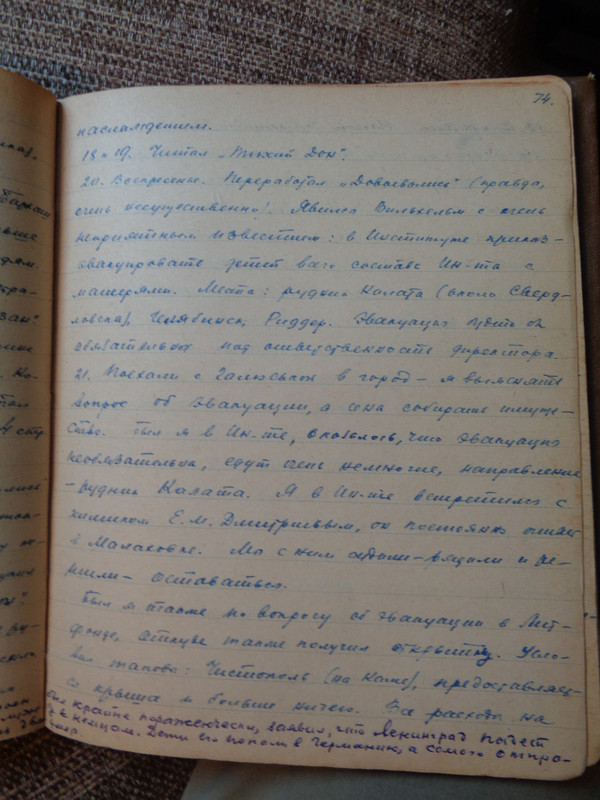 74.
наслаждением.
18 и 19. Читал „Тихий Дон".
20. Воскресенье. Переработал „Довоевались" (правда,
очень несущественно). Явился Вильхельм с очень
неприятным известием: в Институте приказ –
эвакуировать детей всего состава Ин-та с
матерями. Места: рудник Калата (около Сверд-
ловска), Челябинск, Риддер. Эвакуация будто бы
обязательная под ответственность директора.
21. Поехали с Галюськой в город – я выяснять
вопрос об эвакуации, а она собирать имуще-
ство. Был я в Ин-те, оказалось, что эвакуация
необязательна, едут очень немногие, направление
– рудник Калата. Я в Ин-те встретился с
химиком Е. М. Дмитриевым, он постоянно
в Малаховке. Мы с ним судили-рядили и ре-
шили – оставаться.
Был я также по вопросу об эвакуации в Лит-
фонде, откуда также получил открытку. Усло-
вия таковы: Чистополь (на Каме), предоставляет-
ся крыша и больше ничего. За расходы на
был крайне пораженчески, заявил, что Ленинград падет
к немцам. Дети его попали в Германию, а самого отпра-